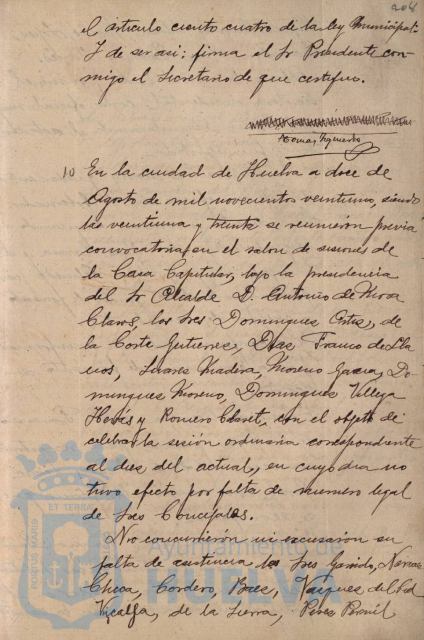 204
el artículo ciento cuatro de la ley Municipal.
Y de ser así: firma el Sr Presidente con-
migo el Secretario de que certifico.
10 En la ciudad de Huelva a doce de
Agosto de mil novecientos veintiuno, siendo
las veintiuna y treinta se reunieron previa
convocatoria, en el salon de sesiones de
la Casa Capitular, bajo la presidencia
del Sr Alcalde D. Antonio de Mora
Claros, los Sres Dominguez Ortiz, de
la Corte Gutierrez, Diaz Franco de Lla
nos, Suarez Madera, Moreno Garcia, Do-
minguez Moreno, Dominguez Villega
y Romero Claret, con el objeto de
celebrar la sesión ordinaria correspondiente
al diez del actual, en cuyo dia no
tuvo efecto por falta de numero legal
de Sres Concejales.
No concurrieron ni excusaron su
falta de asistencia los Sres Garrido,
Checa, Cordero, Baez, Vazquez del Cid
Vizcaya, de la Sierra, Perez
Ayuntamiento de
HUELVA
PORTUS MARIS ET TERRAE